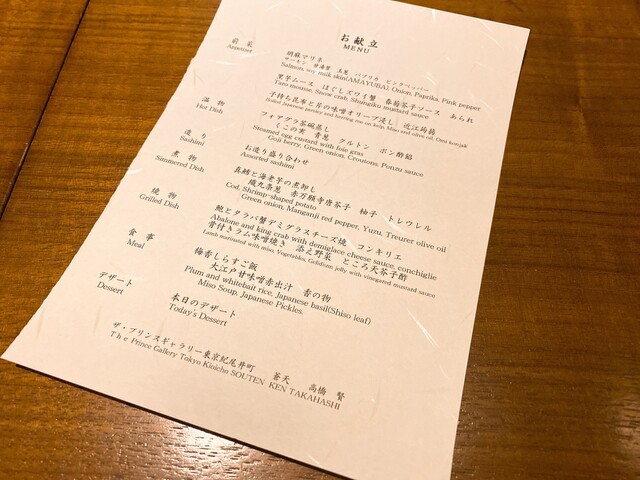 お献立
MENU
前菜
Appetizer
胡麻マリネ
サーモン 甘湯葉 玉葱 パプリカ ピンクペッパー
Salmon, soy milk skin(AMAYUBA), Onion, Paprika, Pink pepper
里芋ムース ほぐしズワイ蟹 春菊芥子ソース あられ
Taro mousse, Snow crab, Shungiku mustard sauce
子持ち昆布と芹の味噌オリーブ浸し 近江蒟蒻
Boiled Japanese parsley and herring roe on kelp, Miso and olive oil, Omi konjak
温物
Hot Dish
フォアグラ茶碗蒸し
くこの実 青葱 クルトン ポン酢餡
Steamed egg custard with foie gras
Goji berry, Green onion, Croutons, Ponzu sauce
造り
Sashimi
お造り盛り合わせ
Assorted sashimi
煮物
Simmered Dish
真鱈と海老芋の煮卸し
織九条葱 赤万願寺唐芥子 柚子 トレウレル
Cod, Shrimp-shaped potato
Green onion, Manganji red pepper, Yuzu, Treurer olive oil
焼物
Grilled Dish
鮑とタラバ蟹デミグラスチーズ焼 コンキリエ
Abalone and king crab with demiglace cheese sauce, conchiglie
骨付きラム味噌焼き 添え野菜 ところ天芥子酢
Lamb marinated with miso, Vegetables, Gelidium jelly with vinegared mustard sauce
食事
Meal
梅香しらすご飯
大江戸甘味噌赤出汁 香の物
Plum and whitebait rice, Japanese basil(Shiso leaf)
Miso Soup, Japanese Pickles.
デザート
Dessert
本日のデザート
Today's Dessert
ザ・プリンスギャラリー東京紀尾井町 蒼天 高橋 賢
The Prince Gallery Tokyo Kioicho SOUTEN KEN TAKAHASHI